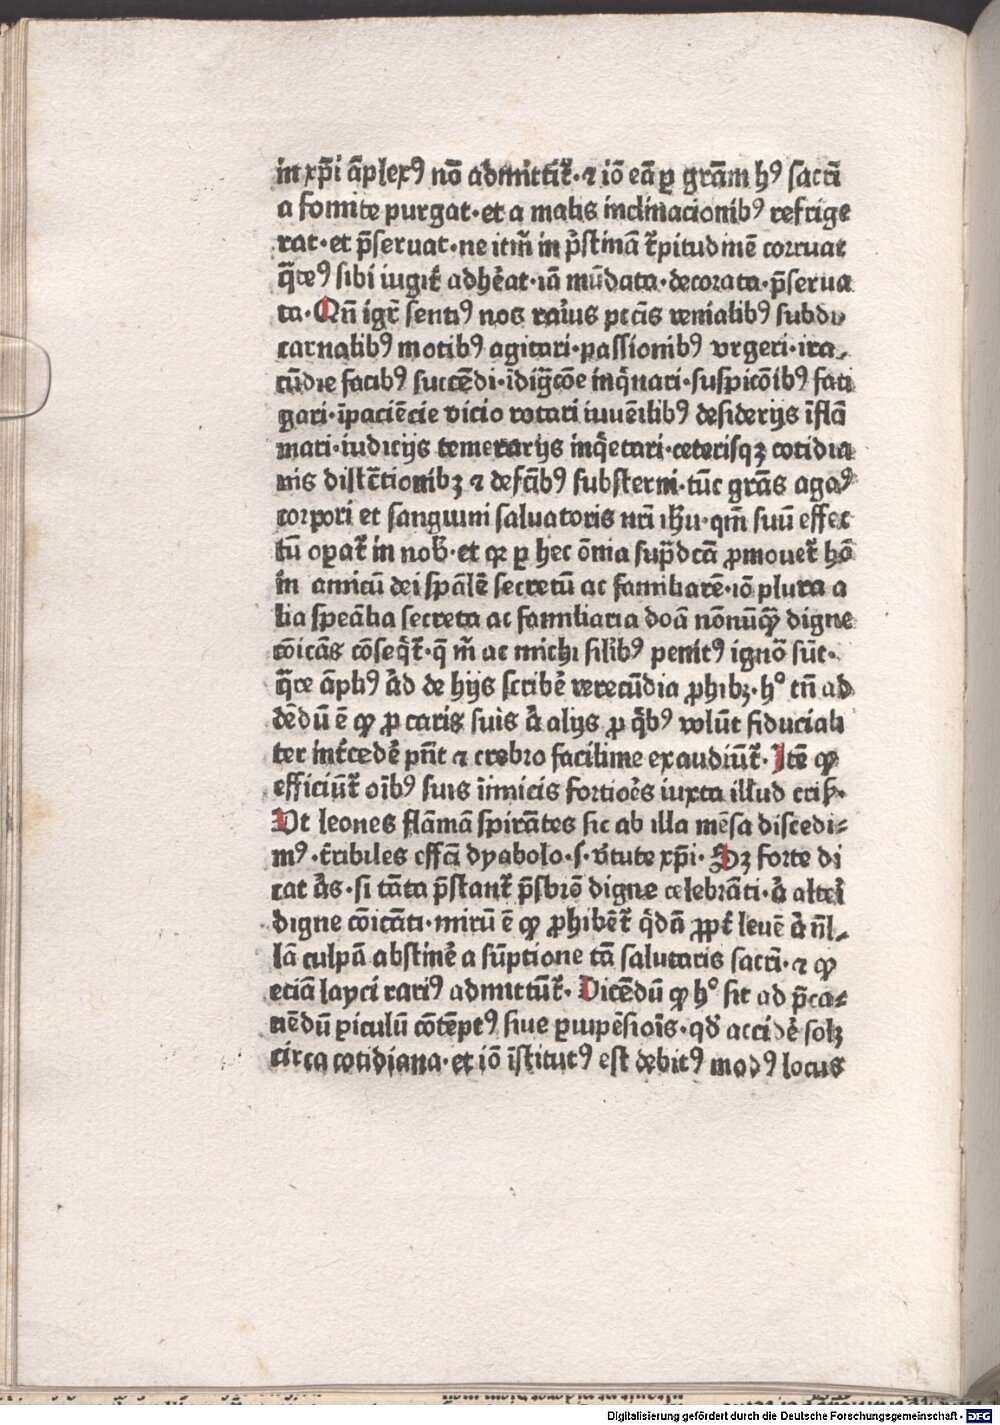 in xp̄i āplexꝰ nō admittit᷑· ⁊ iō eā ꝑ grām hꝰ sacrī
a fomite purgat· et a malis inclinacionibꝰ refrige
rat· et p̄seruat· ne itm̄ in p̓stinā t᷑pitudinē corruat
q̄teꝰ sibi iugit᷑ adhe᷑at· iā mūdata· decorata· p̄serua
ta· Qn̄ igr᷑ sentiꝰ nos rariꝰus pctīs venialibꝰ subdi
carnalibꝰ motibꝰ agitari· passionibꝰ vrgeri· ira-
cūdie facibꝰ succēdi· īdigc̄ōe inq̓nari· suspicōībꝰ fati
gari· īpaciēcie vicio rotari iuuēilibꝰ desiderijs īflā
mari· iudicijs temerarijs inq̓etari· ceterisqꝫ cotidia
nis distc̄tionibꝫ ⁊ defc̄ibꝰ substerni· tūc grās agaꝰ
corpori et sanguini saluatoris nr̄i ihū· qm̄ suū effec
tū oꝑat᷑ in nob̄· et qꝛ ꝑ hec ōnia sup̄dc̄ā ꝓmouet᷑ hō
in amicū dei spālē secretū ac familiarē· iō plura a
lia speālia secreta ac familiaria doā nōnūqꝫ digne
cōicās cōseq̓t᷑· q̄ m̄ ac michi silibꝰ penitꝰ ignō sūt·
q̄re āpliꝰ ad de hijs scribe᷑ verecūdia ꝓhibꝫ· hº tn̄ ad
dēdū ē ꝙ ꝓ caris suis a᷑ alijs ꝓ q̓bꝰ volūt fiduciali
ter int᷑cede᷑ pn̄t ⁊ crebro facilime exaudiūt᷑· Itē ꝙ
efficiūt᷑ oībꝰ suis īimicis fortiore᷑s iuxta illud cris·
Vt leones flāmā spirātes sic ab illa mēsa discedi-
mꝰ· t᷑ribiles effc̄i dyabolo· s· v᷑tute xp̄i· Sꝫ forte di
cat a᷑s· si tāta p̄stant᷑ p̄sbrō digne celebrāti· a᷑ altei᷑
digne cōicāti· mirū ē ꝙ ꝓhibēt᷑ q̓dā ꝓpt᷑ leuē a᷑ n̄l-
lā culpā abstine᷑ a sūptione tā salutaris sacrī· ⁊ ꝙ
eciā layci rariꝰ admittūt᷑· Dicēdū ꝙ hº sit ad p̄ca-
uēdū ꝑiculū cōtēptꝰ siue ꝑuipēsiois̄· qd̓ accide᷑ solꝫ
circa cotidiana· et iō īstitutꝰ est debitꝰ modꝰ locus
Digitalisierung gefördert durch die Deutsche Forschungsgemeinschaft - DFG